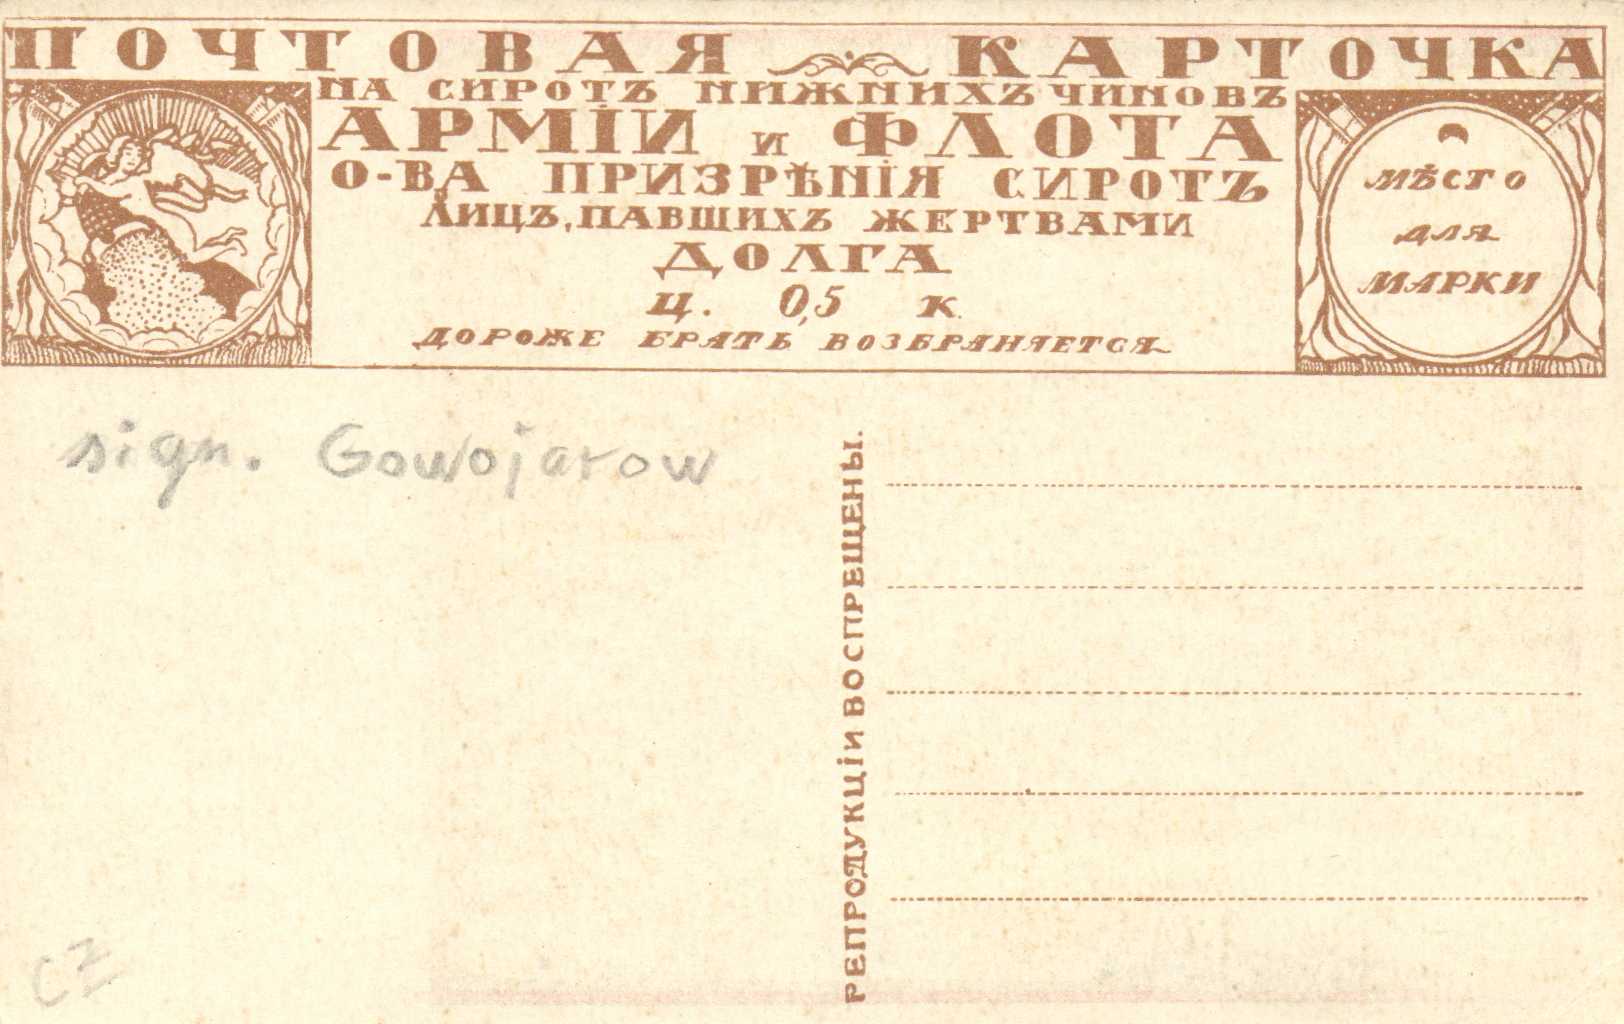 ПОЧТОВАЯ КАРТОЧКА
НА СИРОТЪ НИЖНИХЪ ЧИНОВЪ
АРМІИ И ФЛОТА
О-ВА ПРИЗРѢНІЯ СИРОТЪ
ЛИЦЪ, ПАВШИХЪ ЖЕРТВАМИ
ДОЛГА
Ц. 0,5 К.
ДОРОЖЕ БРАТЬ ВОЗБРАНЯЕТСЯ
МѢСТО
ДЛЯ
МАРКИ
sign. Gowojarow
РЕПРОДУКЦІИ ВОСПРЕЩЕНЫ.
CZ